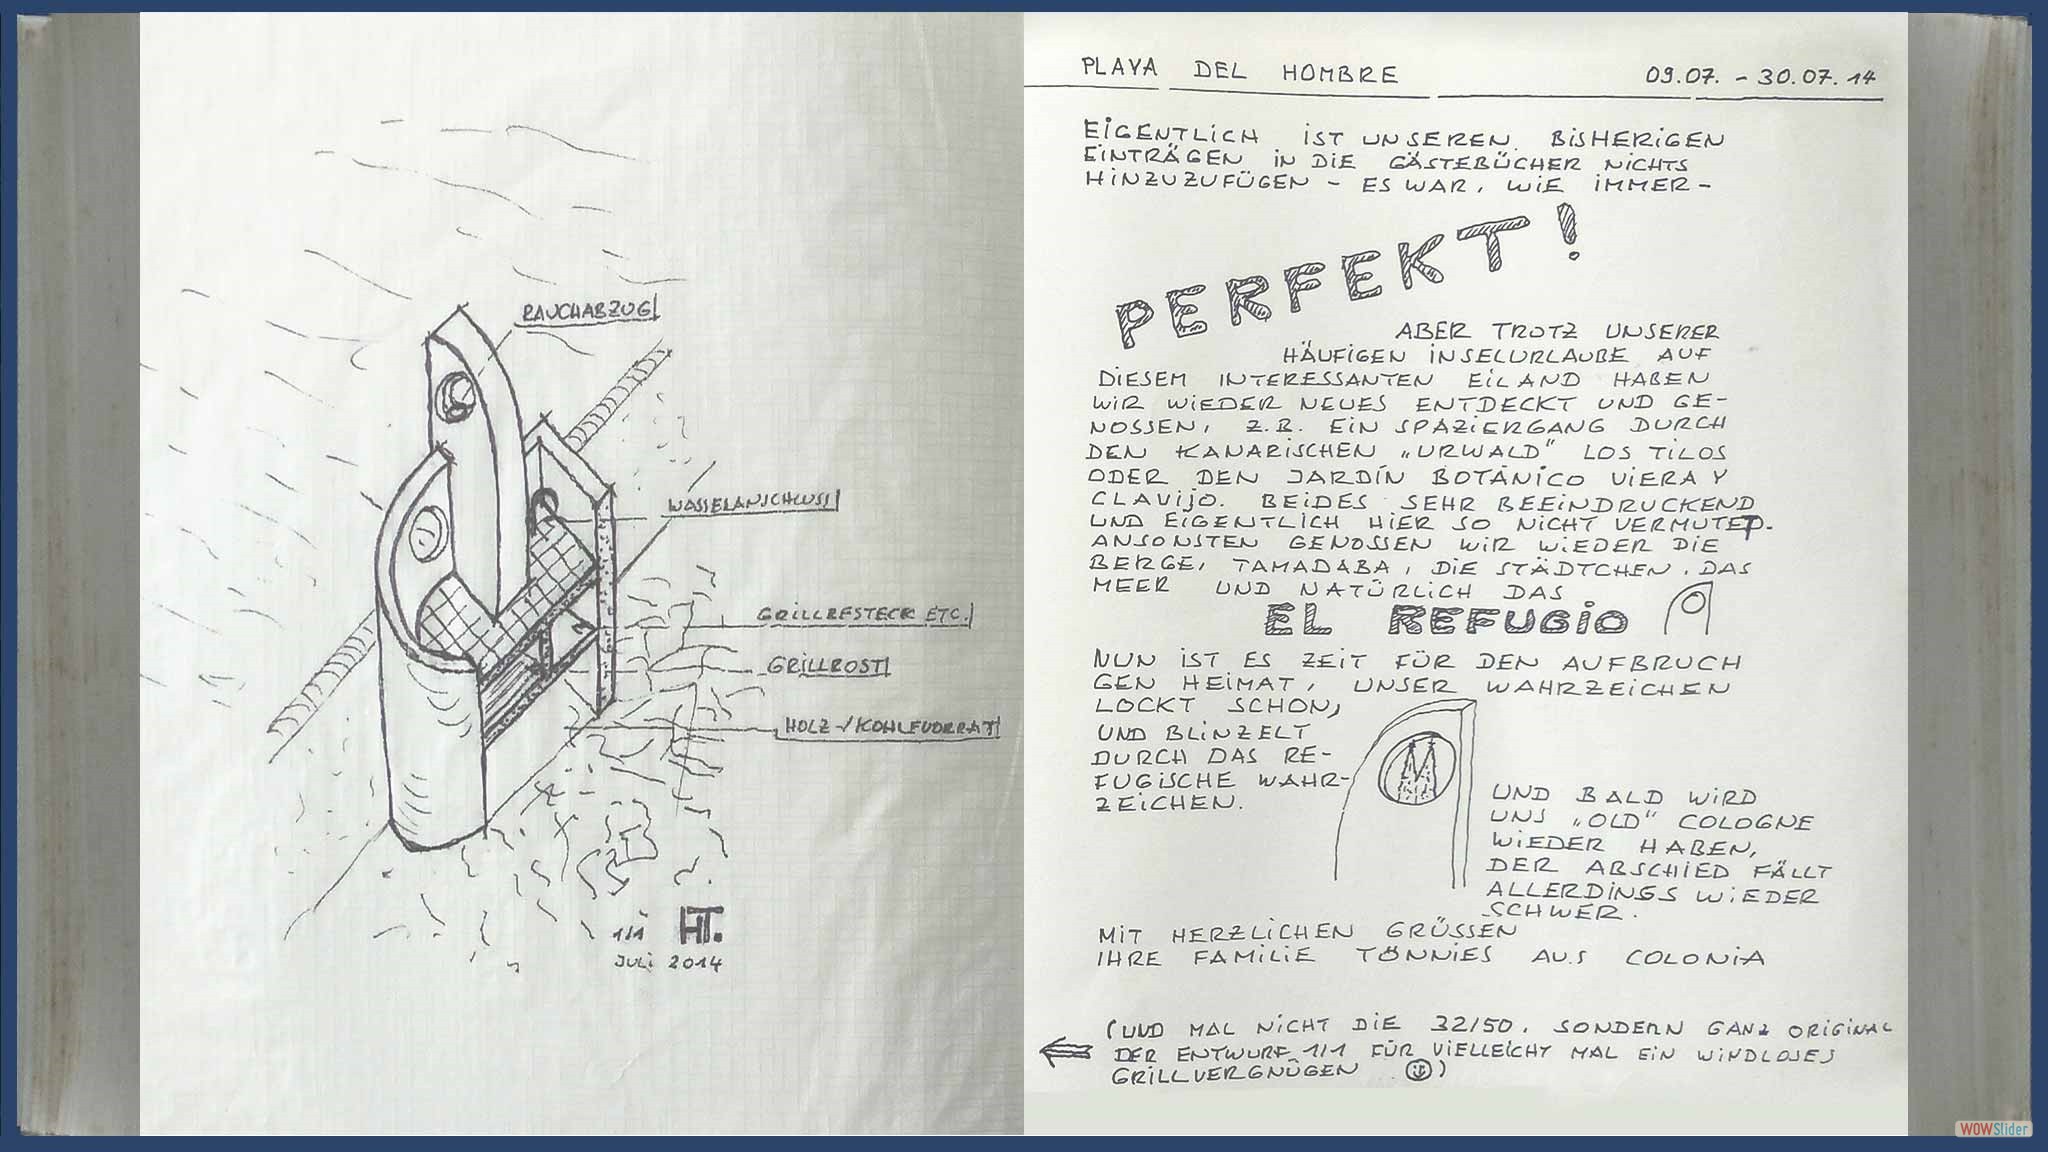 RAUCHABZUG
WASSERANSCHLUSS
GRILLBESTECK ETC.
GRILLROST
HOLZ-/KOHLEVORRAT
1/1 HT.
JULI 2014
PLAYA DEL HOMBRE 09.07. - 30.07.14
EIGENTLICH IST UNSEREN BISHERIGEN
EINTRÄGEN IN DIE GÄSTEBÜCHER NICHTS
HINZUZUFÜGEN - ES WAR, WIE IMMER -
PERFEKT!
ABER TROTZ UNSERER
HÄUFIGEN INSELURLAUBE AUF
DIESEM INTERESSANTEN EILAND HABEN
WIR WIEDER NEUES ENTDECKT UND GE-
NOSSEN, Z.B. EIN SPAZIERGANG DURCH
DEN KANARISCHEN „URWALD" LOS TILOS
ODER DEN JARDÍN BOTÁNICO VIERA Y
CLAVIJO. BEIDES SEHR BEEINDRUCKEND
UND EIGENTLICH HIER SO NICHT VERMUTET.
ANSONSTEN GENOSSEN WIR WIEDER DIE
BERGE, TAMADABA, DIE STÄDTCHEN, DAS
MEER UND NATÜRLICH DAS
EL REFUGIO
NUN IST ES ZEIT FÜR DEN AUFBRUCH
GEN HEIMAT, UNSER WAHRZEICHEN
LOCKT SCHON,
UND BLINZELT
DURCH DAS RE-
FUGISCHE WAHR-
ZEICHEN.
UND BALD WIRD
UNS „OLD" COLOGNE
WIEDER HABEN,
DER ABSCHIED FÄLLT
ALLERDINGS WIEDER
SCHWER.
MIT HERZLICHEN GRÜSSEN
IHRE FAMILIE TÖNNIES AUS COLONIA
(UND MAL NICHT DIE 32/50, SONDERN GANZ ORIGINAL
DER ENTWURF 1/1 FÜR VIELLEICHT MAL EIN WINDLOSES
GRILLVERGNÜGEN )
WOWSlider